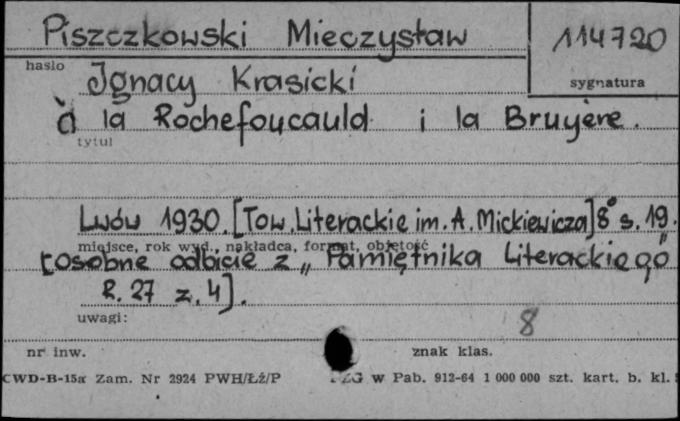 Piszczkowski Mieczysław
114720
hasło
sygnatura
Ignacy Krasicki
à la Rochefoucauld i la Bruyère.
tytuł
Lwów 1930. [Tow. Literackie im. A. Mickiewicza] 8° s. 19.
miejsce, rok wyd., nakładca, format, objętość
[osobne odbicie z „Pamiętnika Literackiego"
R. 27 z. 4].
uwagi:
8
nr inw.
znak klas.
CWD-B-15a Zam. Nr 2924 PWH/Łż/P
w Pab. 912-64 1 000 000 szt. kart. b. kl.